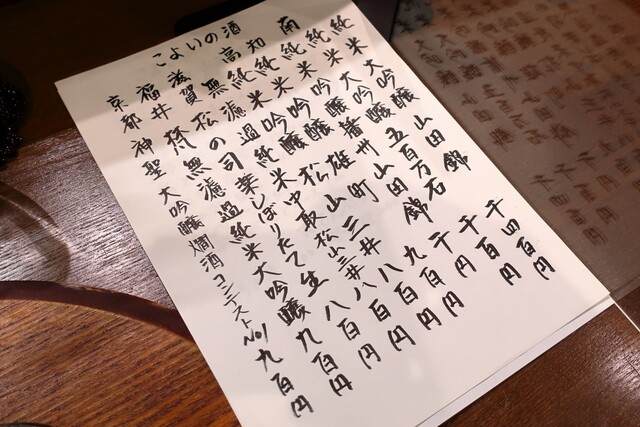 こよいの酒
高知 南
純米大吟醸 山田錦 千四百円
純米大吟醸 五百万石 千百円
純米吟醸 播州山田錦 千円
純米吟醸 雄町 九百円
純米吟醸 松山三井 八百円
無濾過純米中取 松山三井 八百円
滋賀 松の司 しぼりたて生 八百円
福井 梵 無濾過純米大吟醸 九百円
京都 神聖 大吟醸燗酒コンテストNo1 九百円